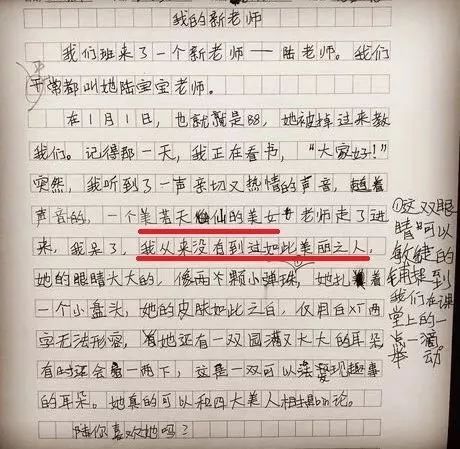 我的新老师
我们班来了一个新老师——陆老师。我们
平常都叫她陆宝宝老师。
在1月1日,也就是BB,她被掉过来教
我们。记得那一天,我正在看书,“大家好!”
突然,我听到了一声亲切又热情的声音,趁着
声音的,一个美若天仙的美女老师走了进
来,我呆了,我从来没有到过如此美丽之人,
她的眼睛大大的,像两个颗小弹珠,她扎着
一个小盘头,她的皮肤如此之白,仅用白对丁两
字无法形容,她还有一双圆满又大大的耳朵
有时还会一两下,这是一双可以发现趣事
的耳朵。她真的可以和四大美人相提bin论。
陆你喜欢她吗?
①这双眼
睛可以
敏捷的
捕捉到
我们在课
堂上的一
点一滴。
举动